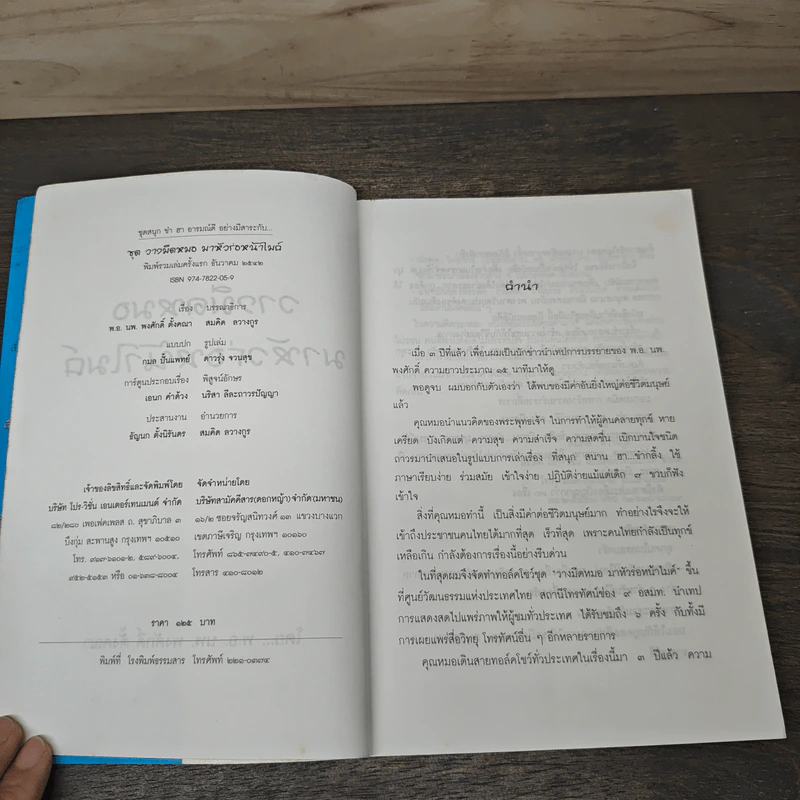 ชุดสนุก ขำ ฮา อารมณ์ดี อย่างมีสาระกับ...
ชุด วางมีดหมอ มาหัวร่อหน้าไมค์
พิมพ์รวมเล่มครั้งแรก ธันวาคม ๒๕๔๒
ISBN 974-7822-05-9
เรื่อง บรรณาธิการ
พ.อ. นพ. พงศักดิ์ ตั้งคณา สมคิด ลวางกูร
แบบปก รูปเล่ม
กมล ปั้นแพทย์ ดาวรุ่ง จวนสุข
การ์ตูนประกอบเรื่อง พิสูจน์อักษร
เอนก คำด้วง นริสา ลีละถาวรปัญญา
ประสานงาน อำนวยการ
ธัญนก ตั้งนิรันดร สมคิด ลวางกูร
เจ้าของลิขสิทธิ์และจัดพิมพ์โดย จัดจำหน่ายโดย
บริษัท โปร-วิชั่น เอนเตอร์เทนเมนต์ จำกัด บริษัทสามัคคีสาร(ดอกหญ้า)จำกัด(มหาชน)
๘๒/๒๘๐ เพอเฟคเพลส ถ. สุขาภิบาล ๓ ๑๖/๒ ซอยจรัญสนิทวงศ์ ๑๓ แขวงบางแวก
บึงกุ่ม สะพานสูง กรุงเทพฯ ๑๐๕๑๐ เขตภาษีเจริญ กรุงเทพฯ ๑๐๑๖๐
โทร. ๙๑๗-๖๑๐๑-๒, ๕๘๙-๖๐๐๔, โทรศัพท์ ๘๖๕-๓๔๙๐-๕, ๔๑๐-๓๔๖๗
๙๕๒-๕๑๕๓ หรือ ๐๑-๖๓๘-๘๐๐๔ โทรสาร ๔๑๐-๘๐๑๒
ราคา ๑๒๕ บาท
พิมพ์ที่ โรงพิมพ์ธรรมสาร โทรศัพท์ ๒๒๑-๐๓๗๔
คำนำ
เมื่อ ๓ ปีที่แล้ว เพื่อนผมเป็นนักข่าวนำเทปการบรรยายของ พ.อ. นพ.
พงศักดิ์ ความยาวประมาณ ๑๕ นาทีมาให้ดู
พอดูจบ ผมบอกกับตัวเองว่า ได้พบของมีค่าอันยิ่งใหญ่ต่อชีวิตมนุษย์
แล้ว
คุณหมอนำแนวคิดของพระพุทธเจ้า ในการทำให้ผู้คนคลายทุกข์ หาย
เครียด บังเกิดแต่ ความสุข ความสำเร็จ ความสดชื่น เบิกบานใจชนิด
ถาวรมานำเสนอในรูปแบบการเล่าเรื่อง ที่สนุก สนาน ฮา...ขำกลิ้ง ใช้
ภาษาเรียบง่าย ร่วมสมัย เข้าใจง่าย ปฏิบัติง่ายแม้แต่เด็ก ๗ ขวบก็ฟัง
เข้าใจ
สิ่งที่คุณหมอทำนี้ เป็นสิ่งมีค่าต่อชีวิตมนุษย์มาก ทำอย่างไรจึงจะให้
เข้าถึงประชาชนคนไทยได้มากที่สุด เร็วที่สุด เพราะคนไทยกำลังเป็นทุกข์
เหลือเกิน กำลังต้องการเรื่องนี้อย่างรีบด่วน
ในที่สุดผมจึงจัดทำทอล์คโชว์ชุด "วางมีดหมอ มาหัวร่อหน้าไมค์" ขึ้น
ที่ศูนย์วัฒนธรรมแห่งประเทศไทย สถานีโทรทัศน์ช่อง ๙ อสมท. นำเทป
การแสดงสดไปแพร่ภาพให้ผู้ชมทั่วประเทศ ได้รับชมถึง ๖ ครั้ง กับทั้งมี
การเผยแพร่สื่อวิทยุ โทรทัศน์อื่น ๆ อีกหลายรายการ
คุณหมอเดินสายทอล์คโชว์ทั่วประเทศในเรื่องนี้มา ๓ ปีแล้ว ความ